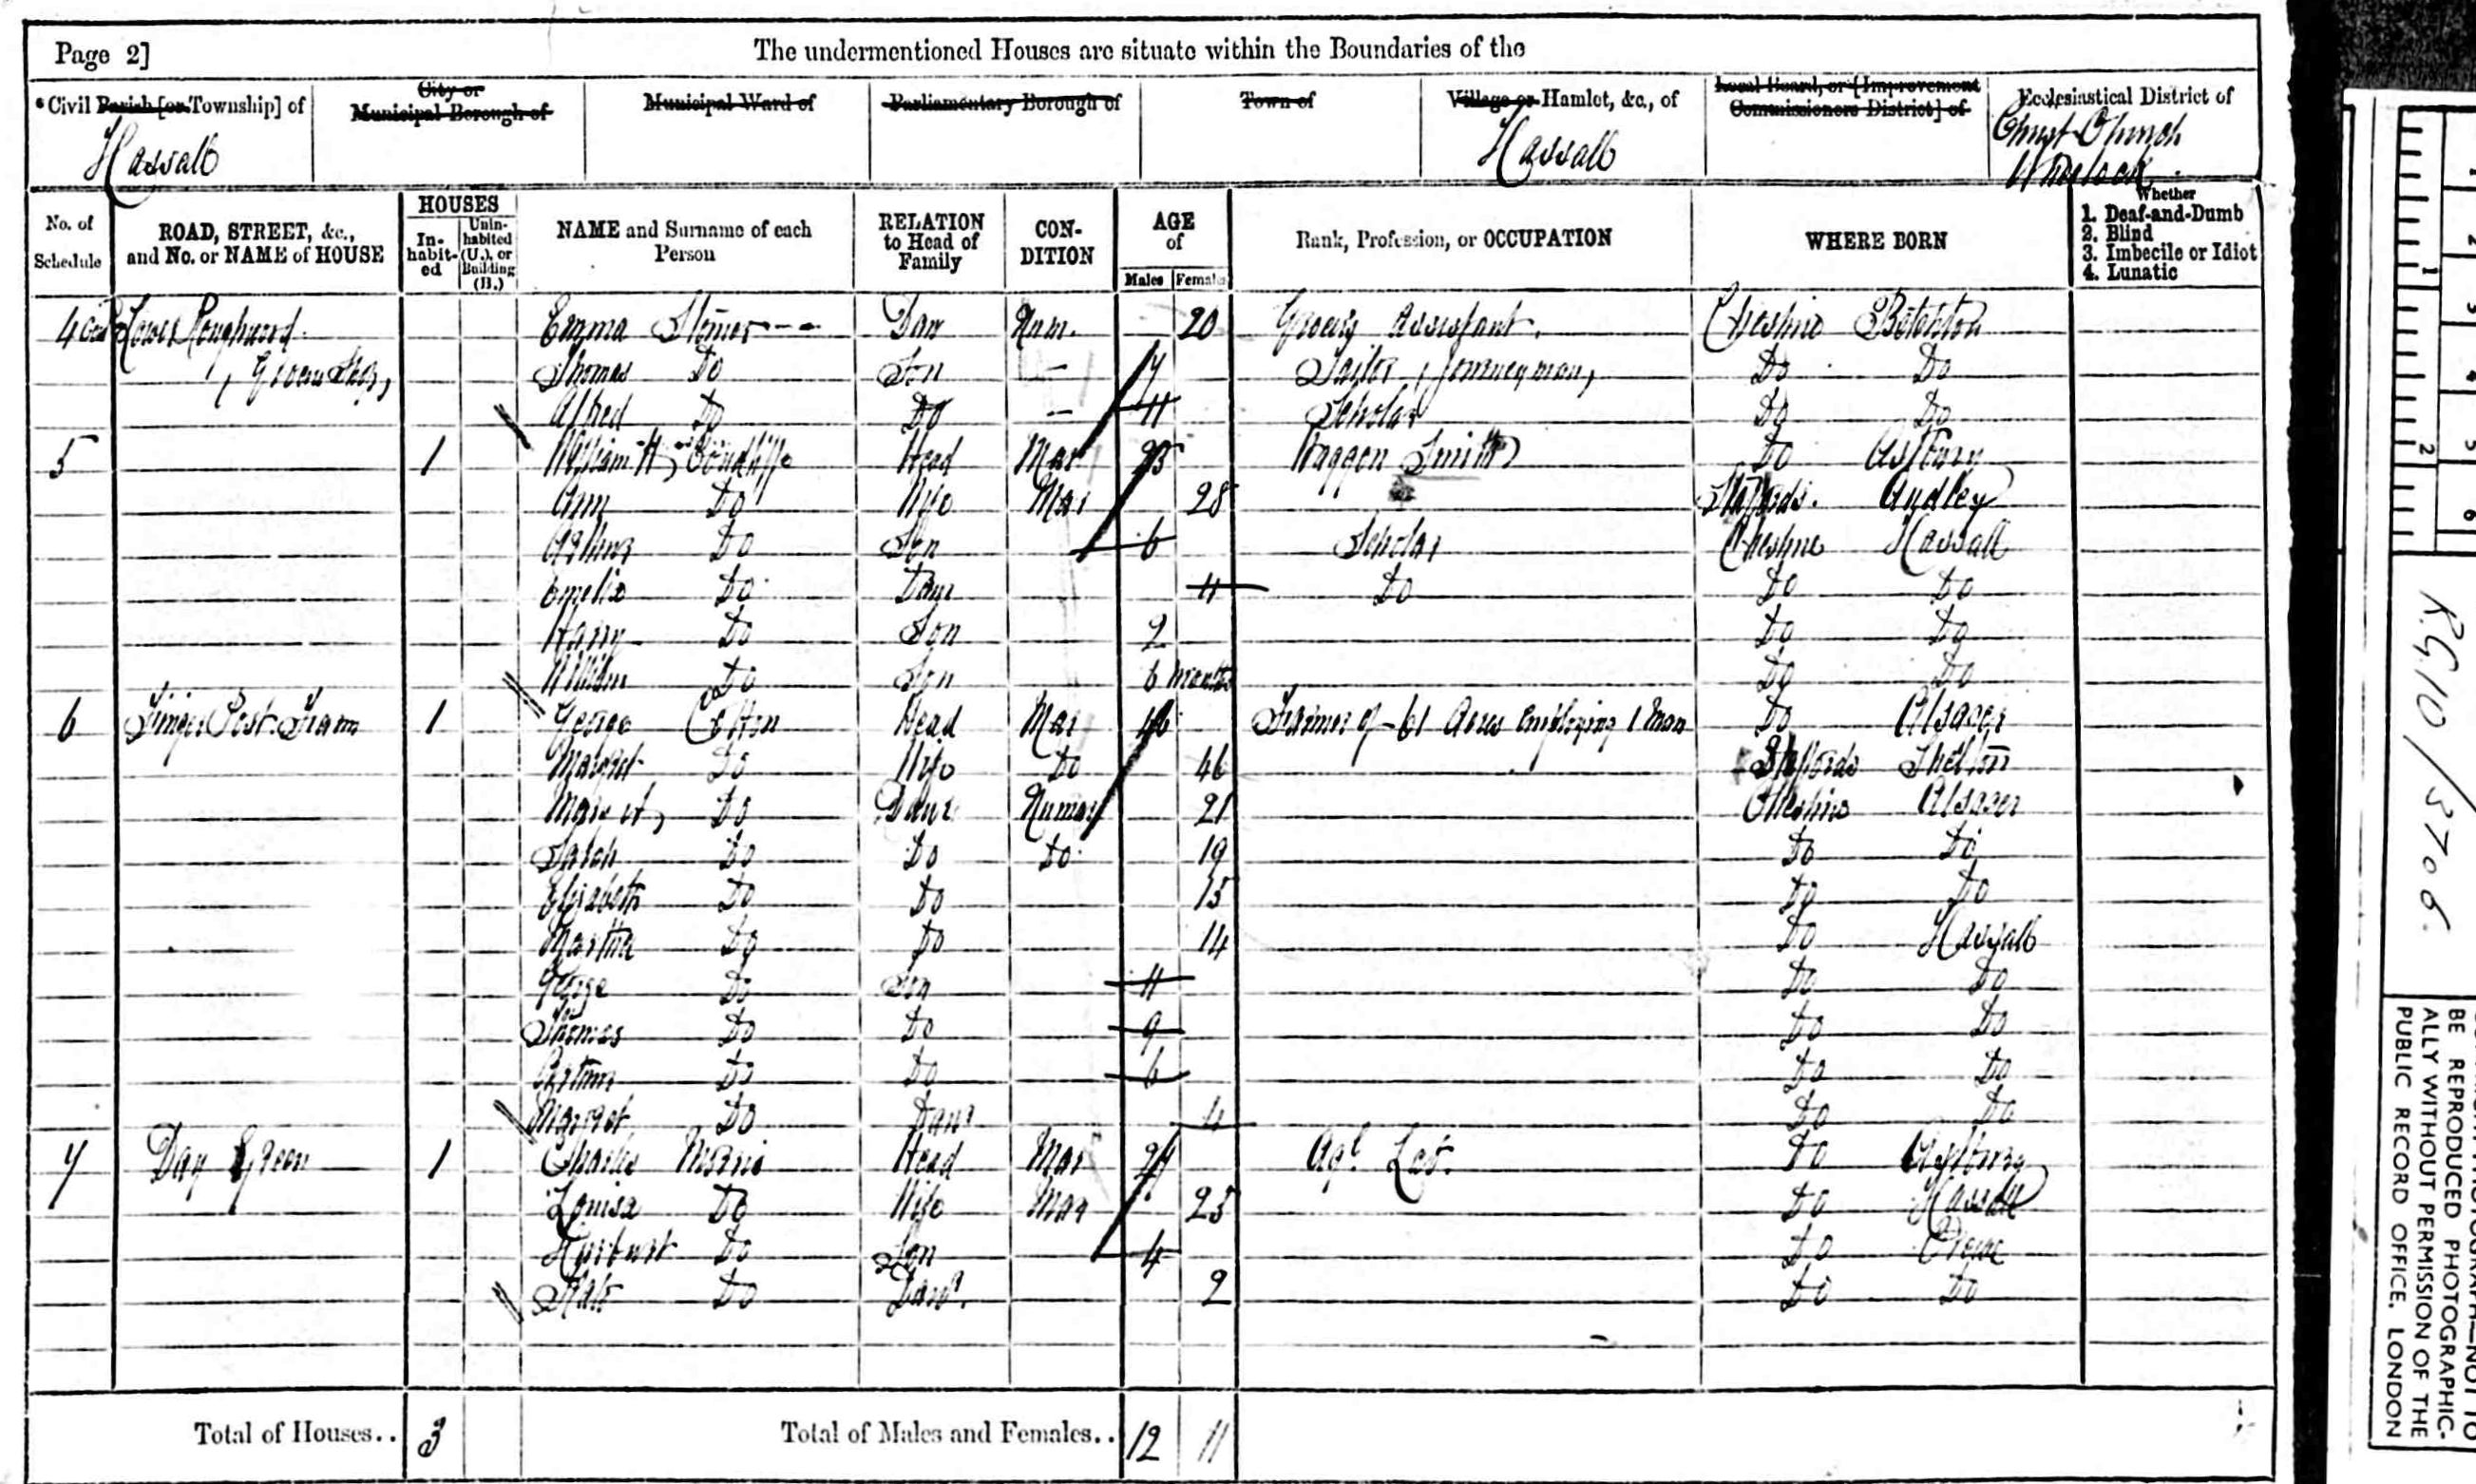 Page 2]
The undermentioned Houses are situate within the Boundaries of the
Civil Parish [or Township] of
City or Municipal Borough of
Municipal Ward of
Parliamentary Borough of
Town of
Village or Hamlet, &c., of
Local Board, or [Improvement Commissioners District] of
Ecclesiastical District of
Hassall
Hassall
Christ Church Wheelock
No. of Schedule
ROAD, STREET, &c., and No. or NAME of HOUSE
HOUSES
Inhabited
Uninhabited (U.), or Building (B.)
NAME and Surname of each Person
RELATION to Head of Family
CONDITION
AGE of
Males
Females
Rank, Profession, or OCCUPATION
WHERE BORN
Whether
1. Deaf-and-Dumb
2. Blind
3. Imbecile or Idiot
4. Lunatic
4 Lower Roughwood Emma Daur Unm. 20 Grocers Assistant. Cheshire Betchton
Grocers Shop, Thomas Do Son — Tailor (Journeyman) Do Do
Alfred Do Do — 11 Scholar Do Do
5 1 William H, Head Mar Waggon Smith Do Astbury
Ann Do Wife Mar 28 Staffords. Audley
Arthur Do Son 6 Scholar Cheshire Hassall
Emelia Do Daur 4 Do Do Do
Harry Do Son 2 Do Do
William Do Son 6 months Do Do
6 Finger Post Farm 1 George Cotton Head Mar 46 Farmer of 61 Acres employing 1 man Do Alsager
Margret Do Wife Do 46 Staffords Shelton
Mary A, Do Daur Unmar 21 Cheshire Alsager
Sarah Do Do Do 19 Do Do
Elizabeth Do Do 15 Do Do
Martha Do Do 14 Do Hassall
George Do Son 11 Do Do
Thomas Do Do 9 Do Do
Do Do 6 Do Do
Margret Do Daur 4 Do Do
7 Day Green 1 Charles Morris Head Mar 24 Agl. Lab. Do Astbury
Louisa Do Wife Mar 25 Do Hassall
Do Son 4 Do Crewe
Kate Do Daur. 2 Do Do
Total of Houses.. 3
Total of Males and Females.. 12 11
R.G. 10/3706.
BE REPRODUCED PHOTOGRAPHIC-
ALLY WITHOUT PERMISSION OF THE
PUBLIC RECORD OFFICE, LONDON